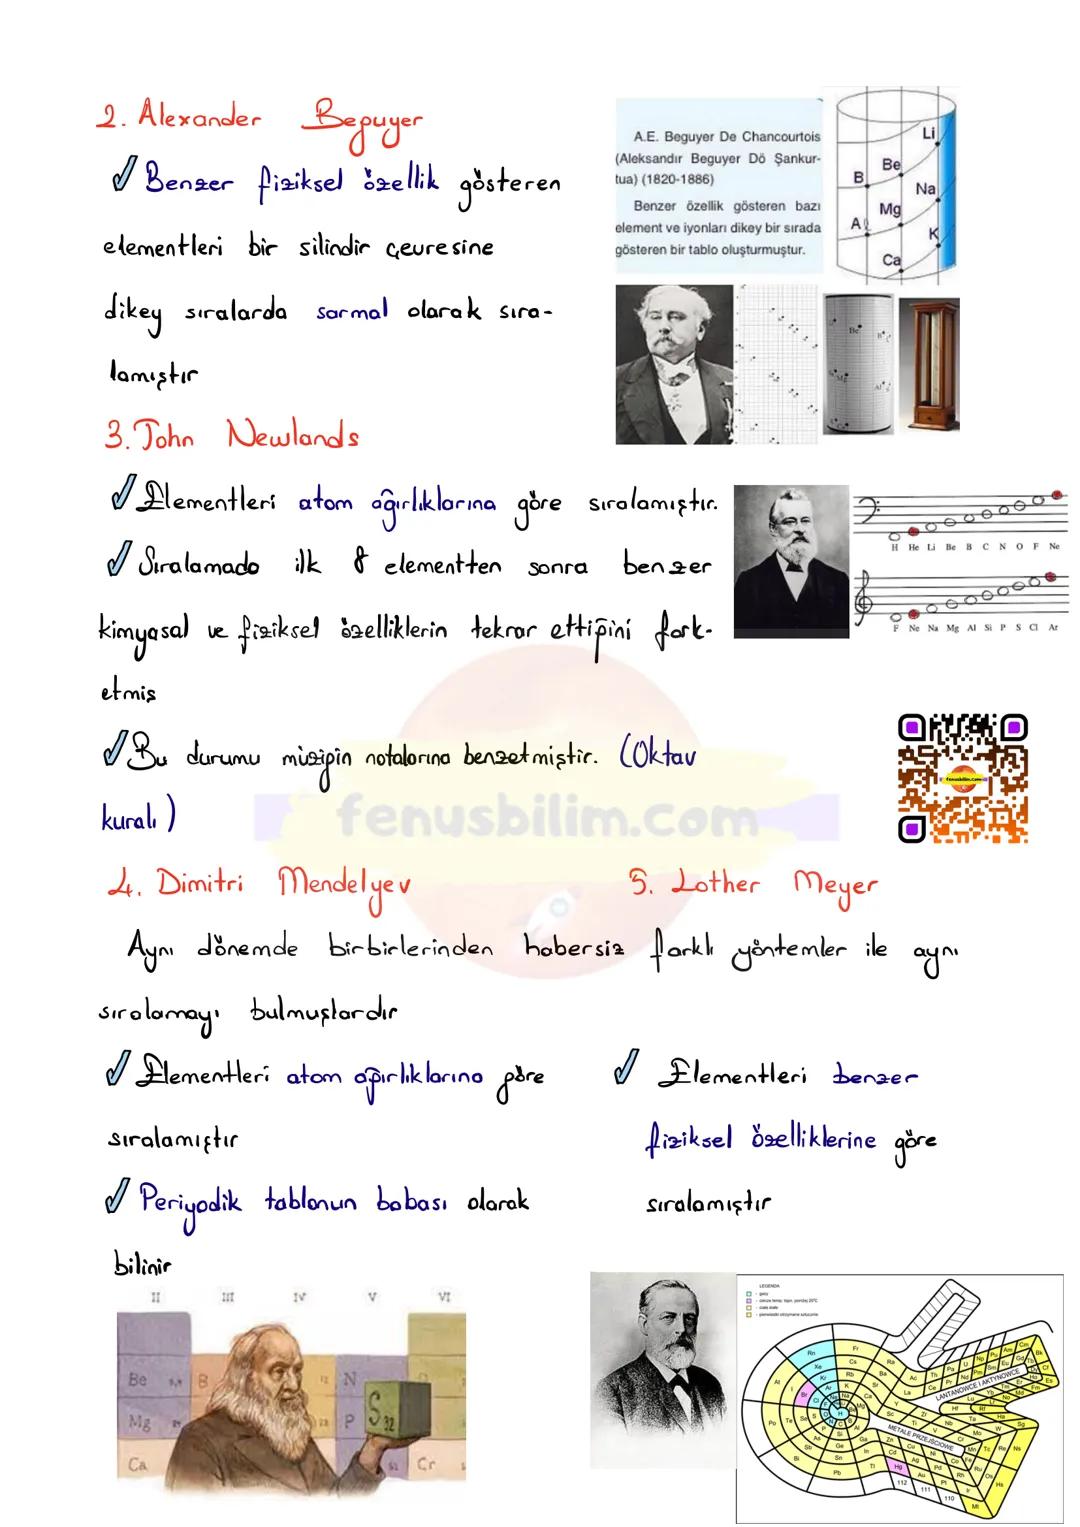 2. Alexander Beguyer
Benzer fiziksel özellik gösteren
elementleri bir silindir çevresine
dikey sıralarda sarmal olarak sıra-
lamıştır
A.E. Beguyer De Chancourtois
(Aleksandır Beguyer Dö Şankur-
tua) (1820-1886)
Benzer özellik gösteren bazı
element ve iyonları dikey bir sırada
gösteren bir tablo oluşturmuştur.
Li
Be
B
Na
Mg
Al
K
Ca
3. John Newlands
Elementleri atom ağırlıklarına göre sıralamıştır.
Sıralamada ilk 8 elementten sonra benzer
kimyasal ve fiziksel özelliklerin tekrar ettiğini fark-
etmiş
Bu durumu müziğin notalarına benzetmiştir. (Oktav
kuralı)
H He Li Be B C N O F Ne
F Ne Na Mg Al Si P S Cl Ar
fenusbilim.com
fenusbilim.com
4. Dimitri Mendelyev
5. Lother Meyer
Aynı dönemde birbirlerinden habersiz farklı yöntemler ile aynı
sıralamayı bulmuşlardır
Elementleri atom ağırlıklarına göre
sıralamıştır
Periyodik tablonun babası olarak
bilinir
Elementleri benzer
fiziksel özelliklerine göre
sıralamıştır
II III IV V VI
Be B 12 N
Mg P S 32
Ca Cr
LEGENDA
LANTANOWCE I AKTYNOWCE
METALE PRZEJŚCIOWE